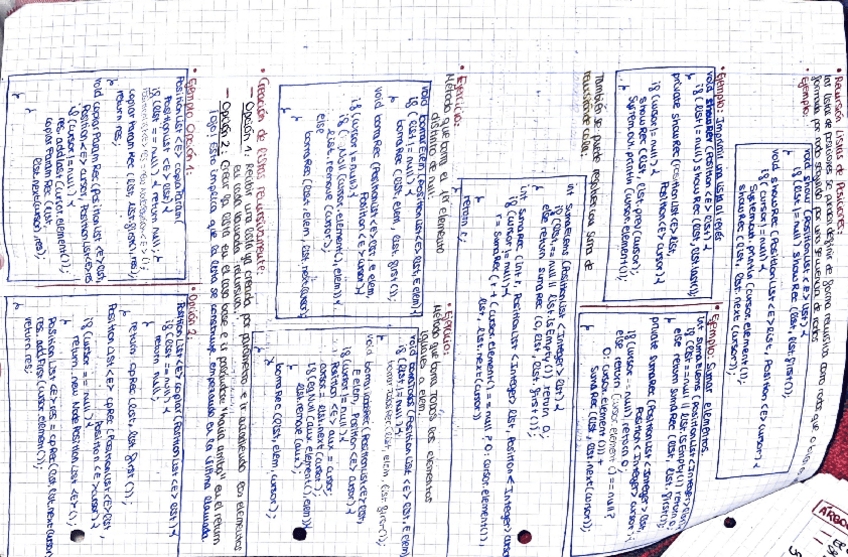 • Recursión Listas de Posiciones:
las listas de posiciones se pueden definir de forma recursiva como nodos, que o bien
formada por nodo seguido por una secuencia de nodos
• Ejemplo:
void show (PositionList <E> list) {
if (list != null) showRec (list, list.first());
}
void showRec (PositionList <E> list, Position <E> cursor) {
if (cursor != null) {
System.out.println (cursor.element());
showRec (list, list.next (cursor));
}
• Ejemplo: Imprimir una lista al revés
void showRec (PositionList <E> list) {
if (list != null) showRec (list, list.last());
}
private showRec (PositionList <E> list,
Position <E> cursor) {
if (cursor != null) {
showRec (list, list.prev (cursor));
System.out.println (cursor.element());
}
• Ejemplo: Sumar elementos
int sumaElems (PositionList <Integer> list) {
if (list == null || list.isEmpty()) return 0;
else return sumaRec (list, list.first());
}
private sumaRec (PositionList <Integer> list,
Position <Integer> cursor) {
if (cursor == null) return 0;
else return (cursor.element() == null ?
0 : cursor.element()) +
sumaRec (list, list.next (cursor));
}
También se puede realizar una suma de
recursión de cola:
int sumaElems (PositionList <Integer> list) {
if (list == null || list.isEmpty()) return 0;
else return sumaRec (0, list, list.first());
}
int sumaRec (int r, PositionList <Integer> list, Position <Integer> cursor
if (cursor != null) {
r = sumaRec (r + (cursor.element() == null ? 0 : cursor.element()),
list, list.next (cursor));
}
return r;
}
• Ejercicio:
Método que borra el 1er elemento
distinto de null
void borraElem (PositionList <E> list, E elem) {
if (list != null) {
borraRec (list, elem, list.first());
}
void borraRec (PositionList <E> list, E elem,
Position <E> cursor) {
if (cursor != null) {
if (
(cursor.element(), elem)) {
list.remove (cursor);
else
borraRec (list, elem, list.next (cursor))
}
• Ejercicio:
Método que borra todos los elementos
iguales a elem
void borraTodos (PositionList <E> list, E elem)
if (list != null) {
borraTodosRec (list, elem, list.first());
}
void borraTodosRec (PositionList <E> list,
E elem, Position <E> cursor) {
if (cursor != null) {
Position <E> aux = cursor;
cursor = list.next (cursor);
if (eqNull (aux.element(), elem)) {
list.remove (aux);
}
borraRec (list, elem, cursor);
}
• Creación de listas recursivamente:
— Opción 1: Recibir una lista ya creada por parámetro e ir añadiendo los elementos
en cada llamada recursiva
— Opción 2: Crear la lista en el caso base e ir
"hacia arriba" en el return
(ojo! esto implica que la lista se construye empezando en la última llamada
• Ejemplo Opción 1:
PositionList <E> copiaParam (
PositionList <E> list) {
if (list == null) { return null; }
PositionList <E> res = new NodePositionList <E> ();
copiarParamRec (list, list.first(), res);
return res;
}
void copiarParamRec (PositionList <E> list,
Position <E> cursor, PositionList <E> res
if (cursor != null) {
res.addLast (cursor.element());
copiarParamRec (list,
list.next (cursor), res);
}
}
• Opción 2:
PositionList <E> copiar (PositionList <E> list) {
if (list == null)
return null;
return cpRec (list, list.first());
}
PositionList <E> cpRec (PositionList <E> list,
Position <E> cursor) {
if (cursor == null) {
return new NodePositionList <E> ();
}
PositionList <E> res = cpRec (list, list.next (cursor
res.addFirst (cursor.element());
return res;